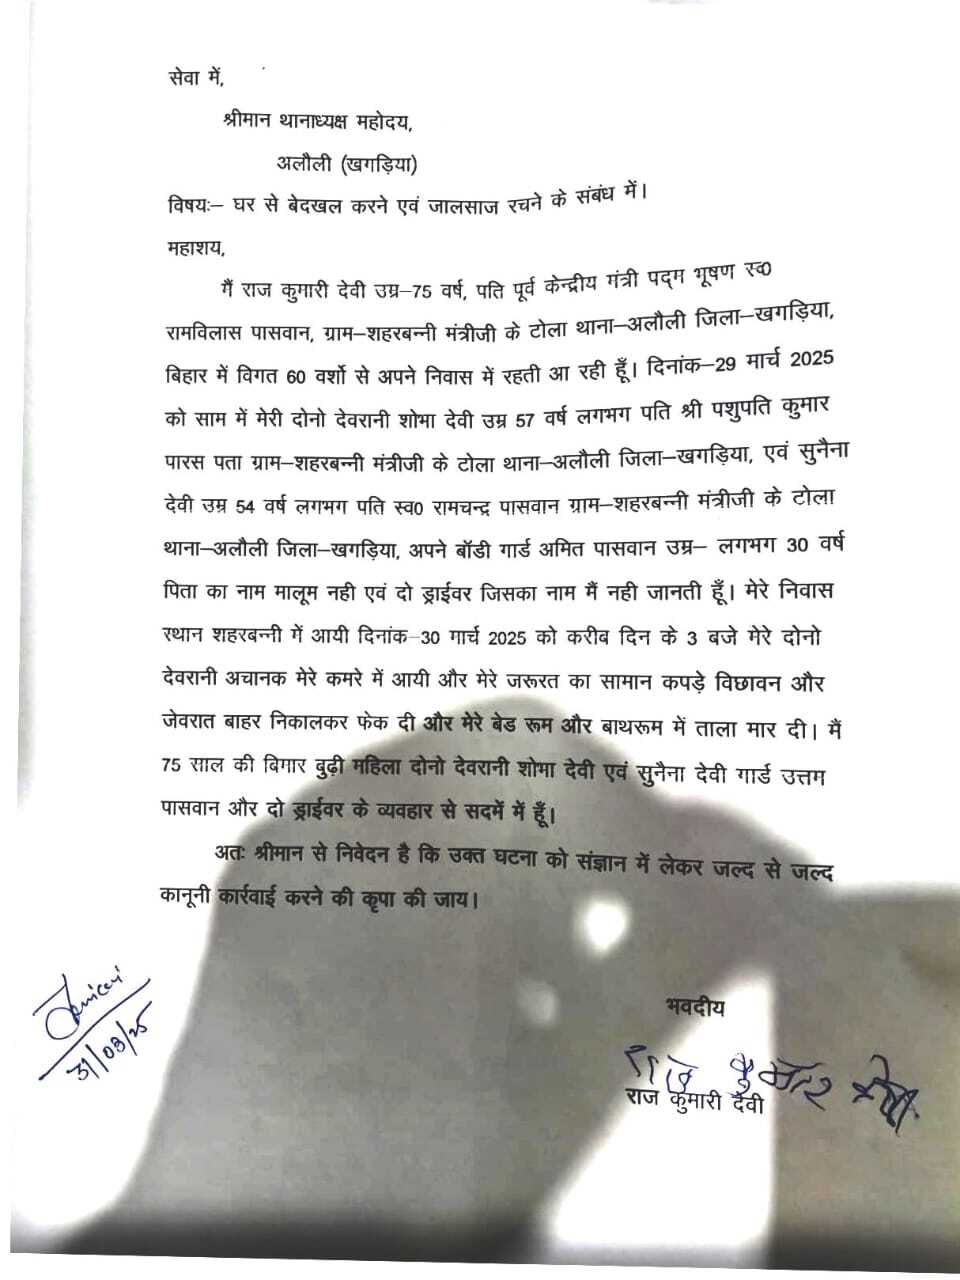 सेवा में,
श्रीमान थानाध्यक्ष महोदय,
अलौली (खगड़िया)
विषयः– घर से बेदखल करने एवं जालसाज रचने के संबंध में।
महाशय,
मैं राज कुमारी देवी उम्र–75 वर्ष, पति पूर्व केन्द्रीय मंत्री पद्म भूषण स्व0
रामविलास पासवान, ग्राम–शहरबन्नी मंत्रीजी के टोला थाना–अलौली जिला–खगड़िया,
बिहार में विगत 60 वर्शो से अपने निवास में रहती आ रही हूँ। दिनांक–29 मार्च 2025
को साम में मेरी दोनो देवरानी शोभा देवी उम्र 57 वर्ष लगभग पति श्री पशुपति कुमार
पारस पता ग्राम–शहरबन्नी मंत्रीजी के टोला थाना–अलौली जिला–खगड़िया, एवं सुनैना
देवी उम्र 54 वर्ष लगभग पति स्व0 रामचन्द्र पासवान ग्राम–शहरबन्नी मंत्रीजी के टोला
थाना–अलौली जिला–खगड़िया, अपने बॉडी गार्ड अमित पासवान उम्र– लगभग 30 वर्ष
पिता का नाम मालूम नही एवं दो ड्राईवर जिसका नाम मैं नही जानती हूँ। मेरे निवास
स्थान शहरबन्नी में आयी दिनांक–30 मार्च 2025 को करीब दिन के 3 बजे मेरे दोनो
देवरानी अचानक मेरे कमरे में आयी और मेरे जरूरत का सामान कपड़े विछावन और
जेवरात बाहर निकालकर फेक दी और मेरे बेड रूम और बाथरूम में ताला मार दी। मैं
75 साल की बिगार बुढ़ी महिला दोनो देवरानी शोभा देवी एवं सुनैना देवी गार्ड उत्तम
पासवान और दो ड्राईवर के व्यवहार से सदमें में हूँ।
अतः श्रीमान से निवेदन है कि उक्त घटना को संज्ञान में लेकर जल्द से जल्द
कानूनी कार्रवाई करने की कृपा की जाय।
भवदीय
राज कुमारी देवी
31/03/25
राज कुमारी देवी